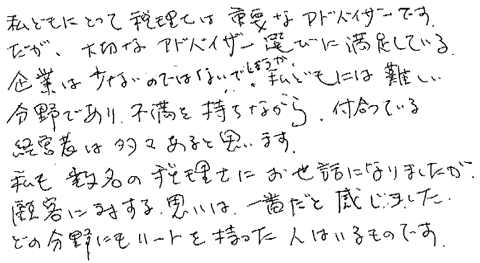 私どもにとって税理士は重要なアドバイザーです。
だが、大切なアドバイザー選びに満足している
企業は少ないのではないでしょうか。私どもには難しい
分野であり、不満を持ちながら、付合っている
経営者は多々あると思います。
私も数名の税理士にお世話になりましたが、
顧客に対する思いは、一番だと感じました。
どの分野にもハートを持った人はいるものです。